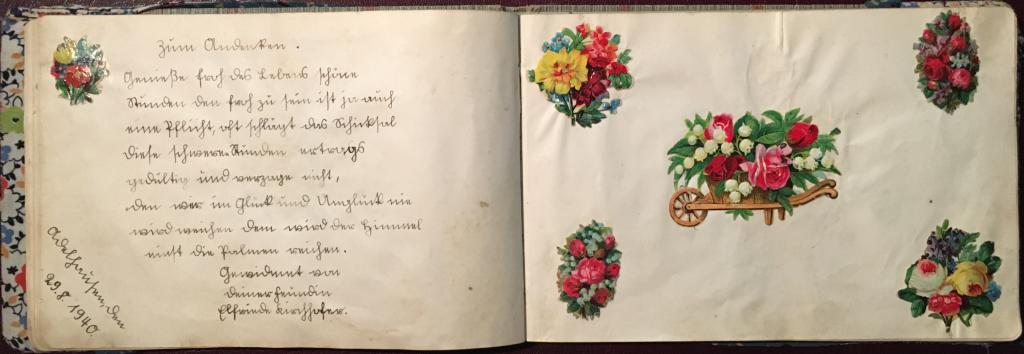 Zum Andenken.
Genieße froh des Lebens schöne
Stunden den froh zu sein ist ja auch
eine Pflicht, oft schlägt das Schicksal
diese schwere Stunden ertrags
gedultig und verzage nicht,
den wer im Glück und Unglück nie
wird weichen dem wird der Himmel
einst die Palmen reichen.
Gewidmet von
deiner Feundin
Elfriede Kirchhofer.
Adelhausen, den
29.8.1940.